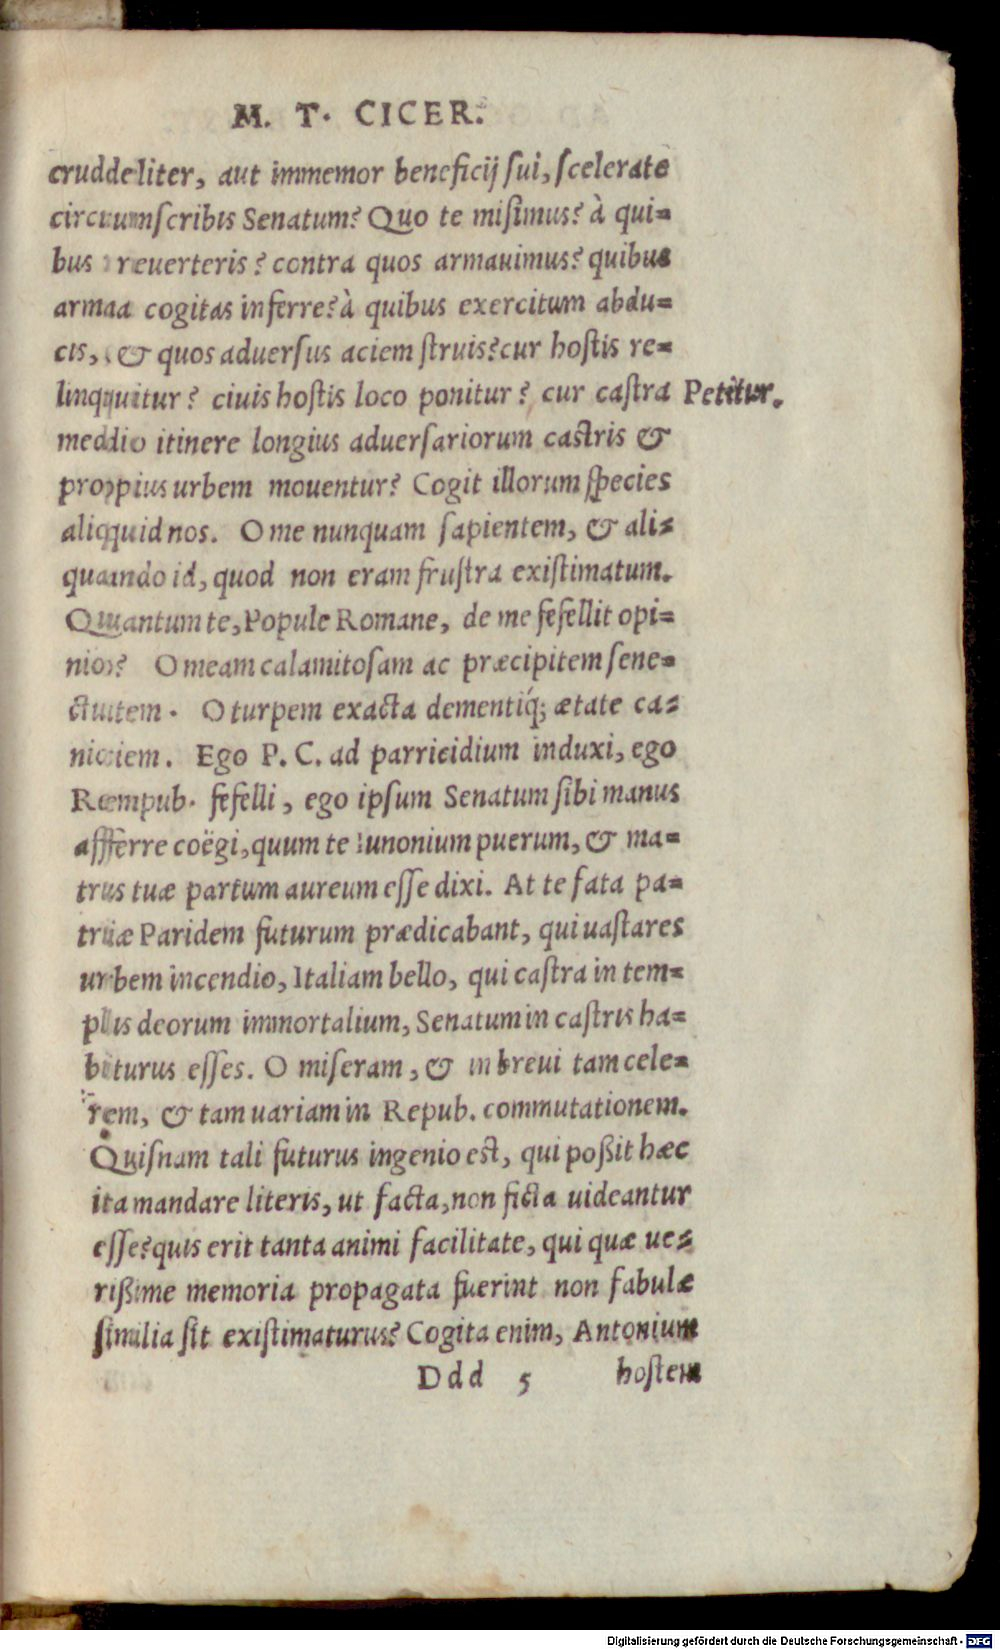 M. T. CICER.
cruddeliter, aut immemor beneficij sui, scelerate
circuumscribis Senatum? Quo te misimus? à qui=
bus reuerteris? contra quos armauimus? quibus
armaa cogitas inferre? à quibus exercitum abdu=
cis, & quos aduersus aciem struis? cur hostis re=
linquitur? ciuis hostis loco ponitur? cur castra Petitur.
meddio itinere longius aduersariorum castris &
proppius urbem mouentur? Cogit illorum species
aliqquid nos. O me nunquam sapientem, & ali=
quaando id, quod non eram frustra existimatum.
Quuantum te, Popule Romane, de me fefellit opi=
nio? O meam calamitosam ac præcipitem sene=
ctutem. O turpem exacta dementiq́; ætate ca=
niciem. Ego P. C. ad parricidium induxi, ego
Reempub. fefelli, ego ipsum Senatum sibi manus
affferre coëgi, quum te Iunonium puerum, & ma=
tris tuæ partum aureum esse dixi. At te fata pa=
triæ Paridem futurum prædicabant, qui uastares
urbem incendio, Italiam bello, qui castra in tem=
plis deorum immortalium, Senatum in castris ha=
biturus esses. O miseram, & in breui tam cele=
rem, & tam uariam in Repub. commutationem.
Quisnam tali futurus ingenio est, qui poßit hæc
ita mandare literis, ut facta, non ficta uideantur
esse? quis erit tanta animi facilitate, qui quæ ue=
rißime memoria propagata fuerint non fabulæ
similia sit existimaturus? Cogita enim, Antonium
Ddd 5 hostem
Digitalisierung gefördert durch die Deutsche Forschungsgemeinschaft - DFG